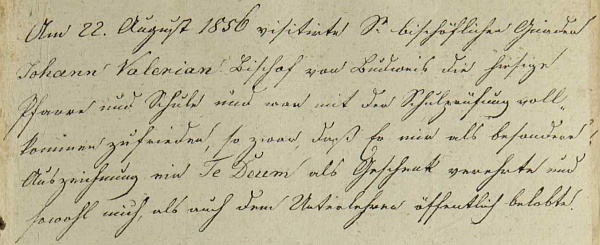 Am 22. August 1856 visitirte Se bischöflichen Gnaden
Johann Valerian Bischof von Budweis die hiesige
Pfarre und Schule und war mit der Schulprüfung voll-
kommen zufrieden, so zwar, daß Er mir als besondere
Auszeichnung ein Te Deum als Geschenk verehrte und
sowohl mich, als auch den Unterlehrer öffentlich belobte.